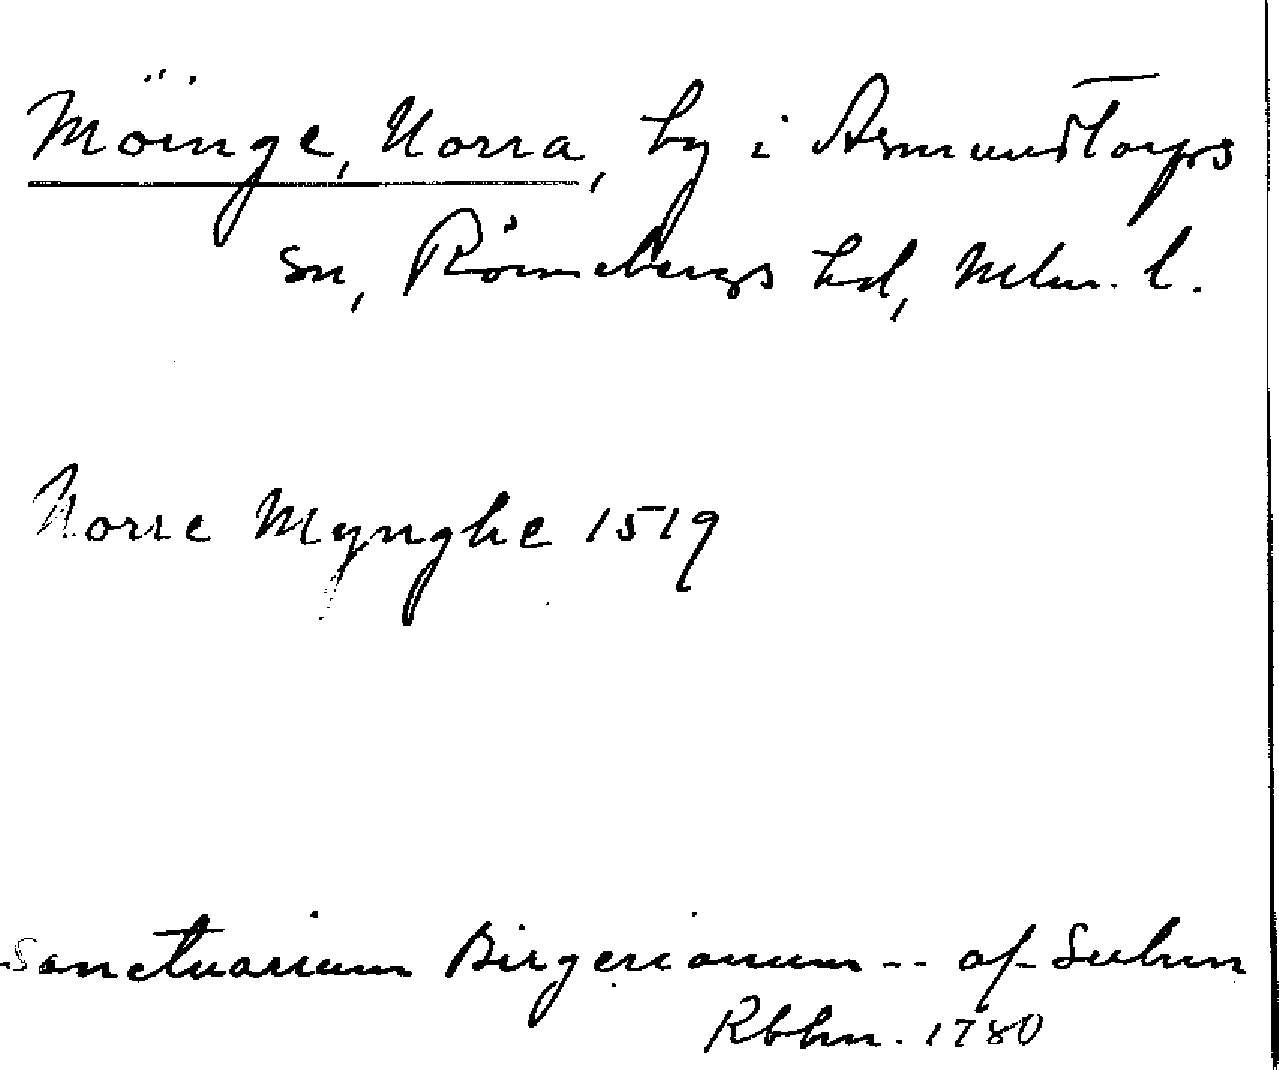 Möinge, Norra, by i Asmundtorps
sn, Rönnebergs hd, Mlm. l.
Norre Mynghe 1519
Sanctuarium Birgerianum -- af Suhm
Kbhn. 1780